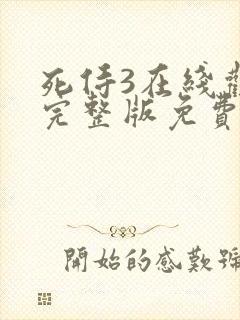 死侍3在綫
完整版免費
開始的感歎